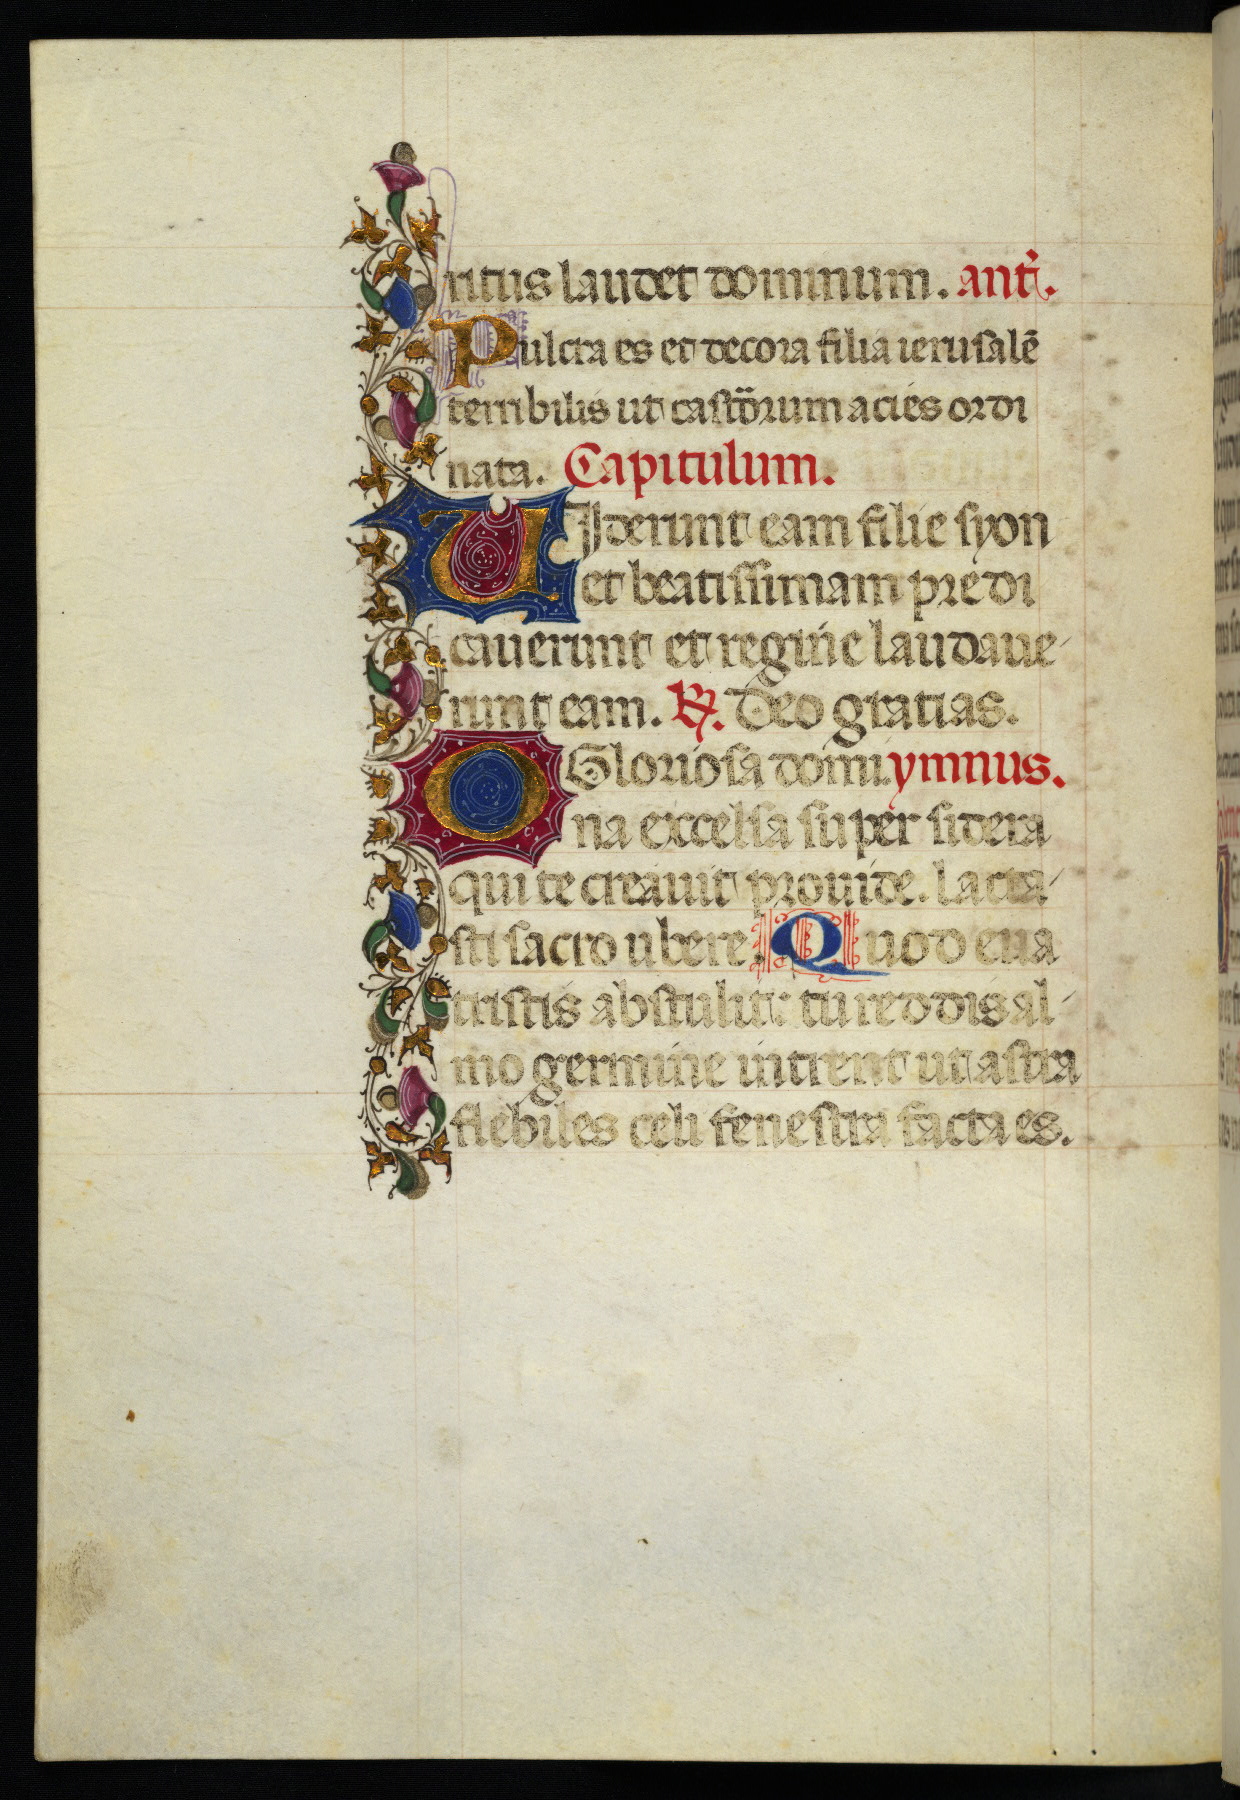 ritus laudet dominum. antͥ.
Pulcra es et decora filia ierusalē
terribilis ut castrorum acies ordi
nata. Capitulum.
Viderunt eam filie syon
et beatissimam predi
cauerunt et regine laudaue
runt eam. ℟. Deo gratias.
O Gloriosa domi ymnus.
na excelsa super sidera
qui te creauit prouide. lacta
sti sacro ubere. Quod eua
tristis abstulit: tu reddis al
mo germine intrent ut astra
flebiles celi fenestra facta es.